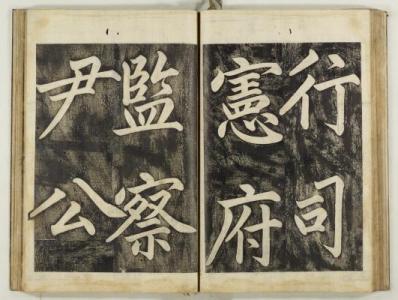 行司
憲府
監察
尹公